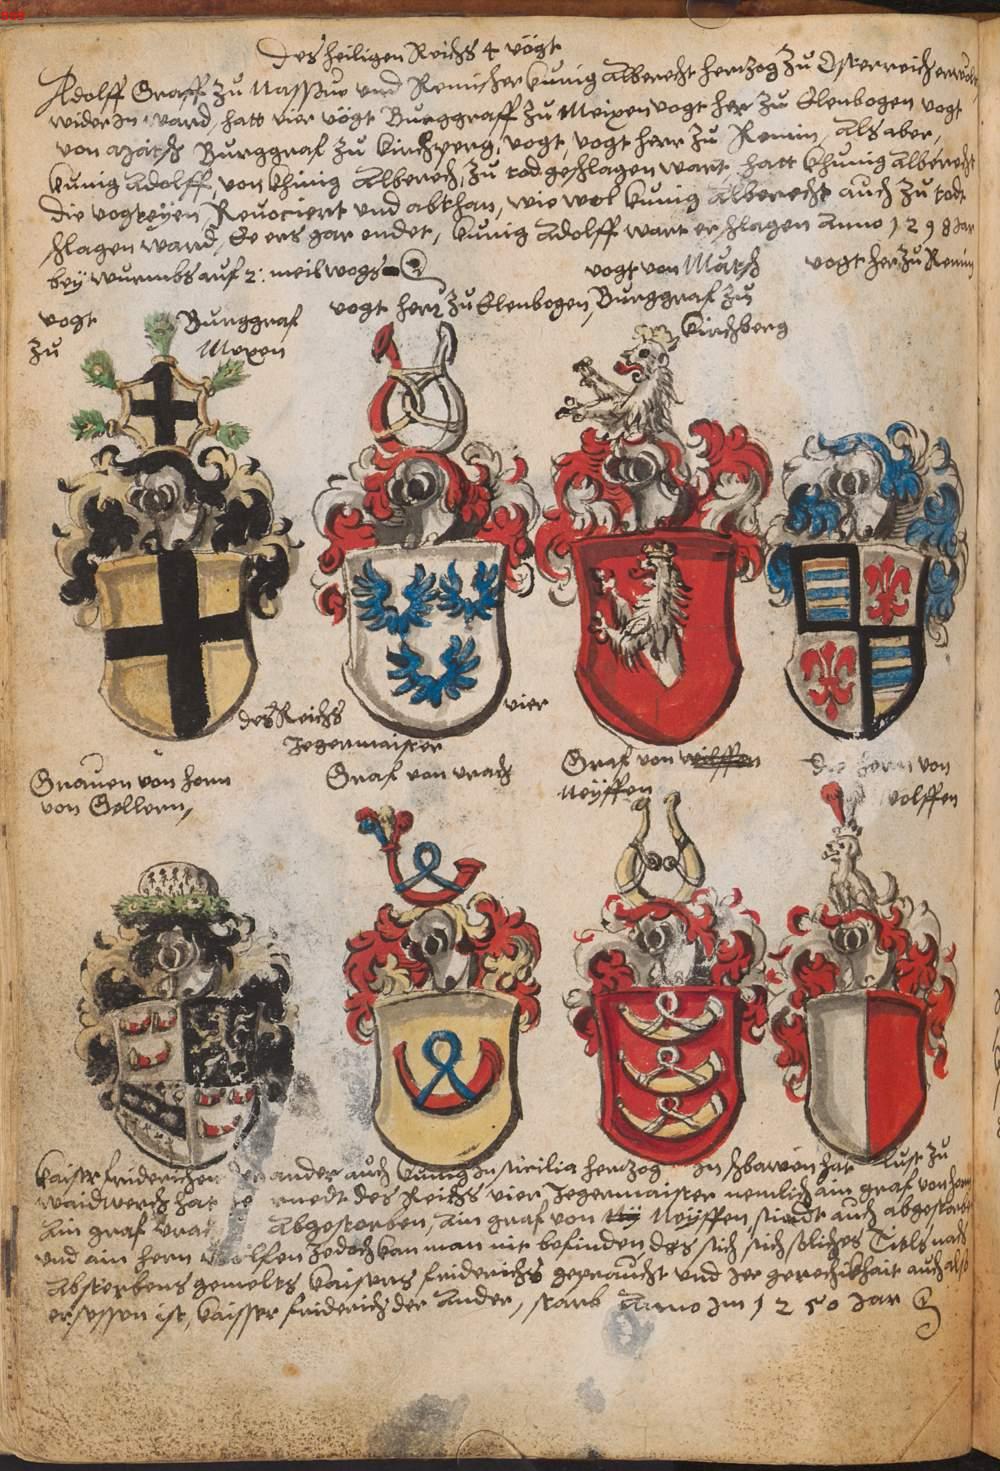 Des heiligen Reichs 4 vögt
Adolff Graff zu Nassaw vnd Remischer kunig Alberecht hertzog zu Osterreich erwölt
wider in ward, hatt vier vögt Burggraff zu Meixen vogt her zu Elenbogen vogt
von Mätsch Burggraf zu Kirchperg, vogt, vogt herr zu Remin, Als aber,
kunig Adolff, von khinig Alberech, zu tod geschlagen wart, hatt khunig Alberecht
die vogteyen Reuociert vnd abthan, wie wol kunig Alberecht auch zu todt
schlagen ward, Ee ers gar endet, kunig Adolff wart erschlagen Anno 1298 Jar
bey wurmbs auf 2: meil wegs
vogt von Mätsch
vogt her zu Remin
vogt herr zu Elenbogen, Burggraf zu
Kirchberg
vogt Burggraf
zu Mexen
des Reichs vier
Jegermaister
Grauen von hern
von Gellern,
Graf von vrach
Graf von
Neyffen
Die hern von
volffen
Kaiser friderichen der ander auch kunig in Sicilia hertzog in Schwaben hat lust zu
waidwerch hat des Reichs vier Jegermaister nemlich ain graf von
Ain graf vrach Abgestorben, Ain graf von Neyffen, sindt auch abgestorben
vnd ain hern wolffen Jedoch kan man nit befinden das sich solches Titls nach
Absterbens gemelts kaisers friderichs gepraucht vnd Jer gerechikhait auch also
ersessen ist, kaisser friderich der Ander, starb Anno Jm 1250 Jar